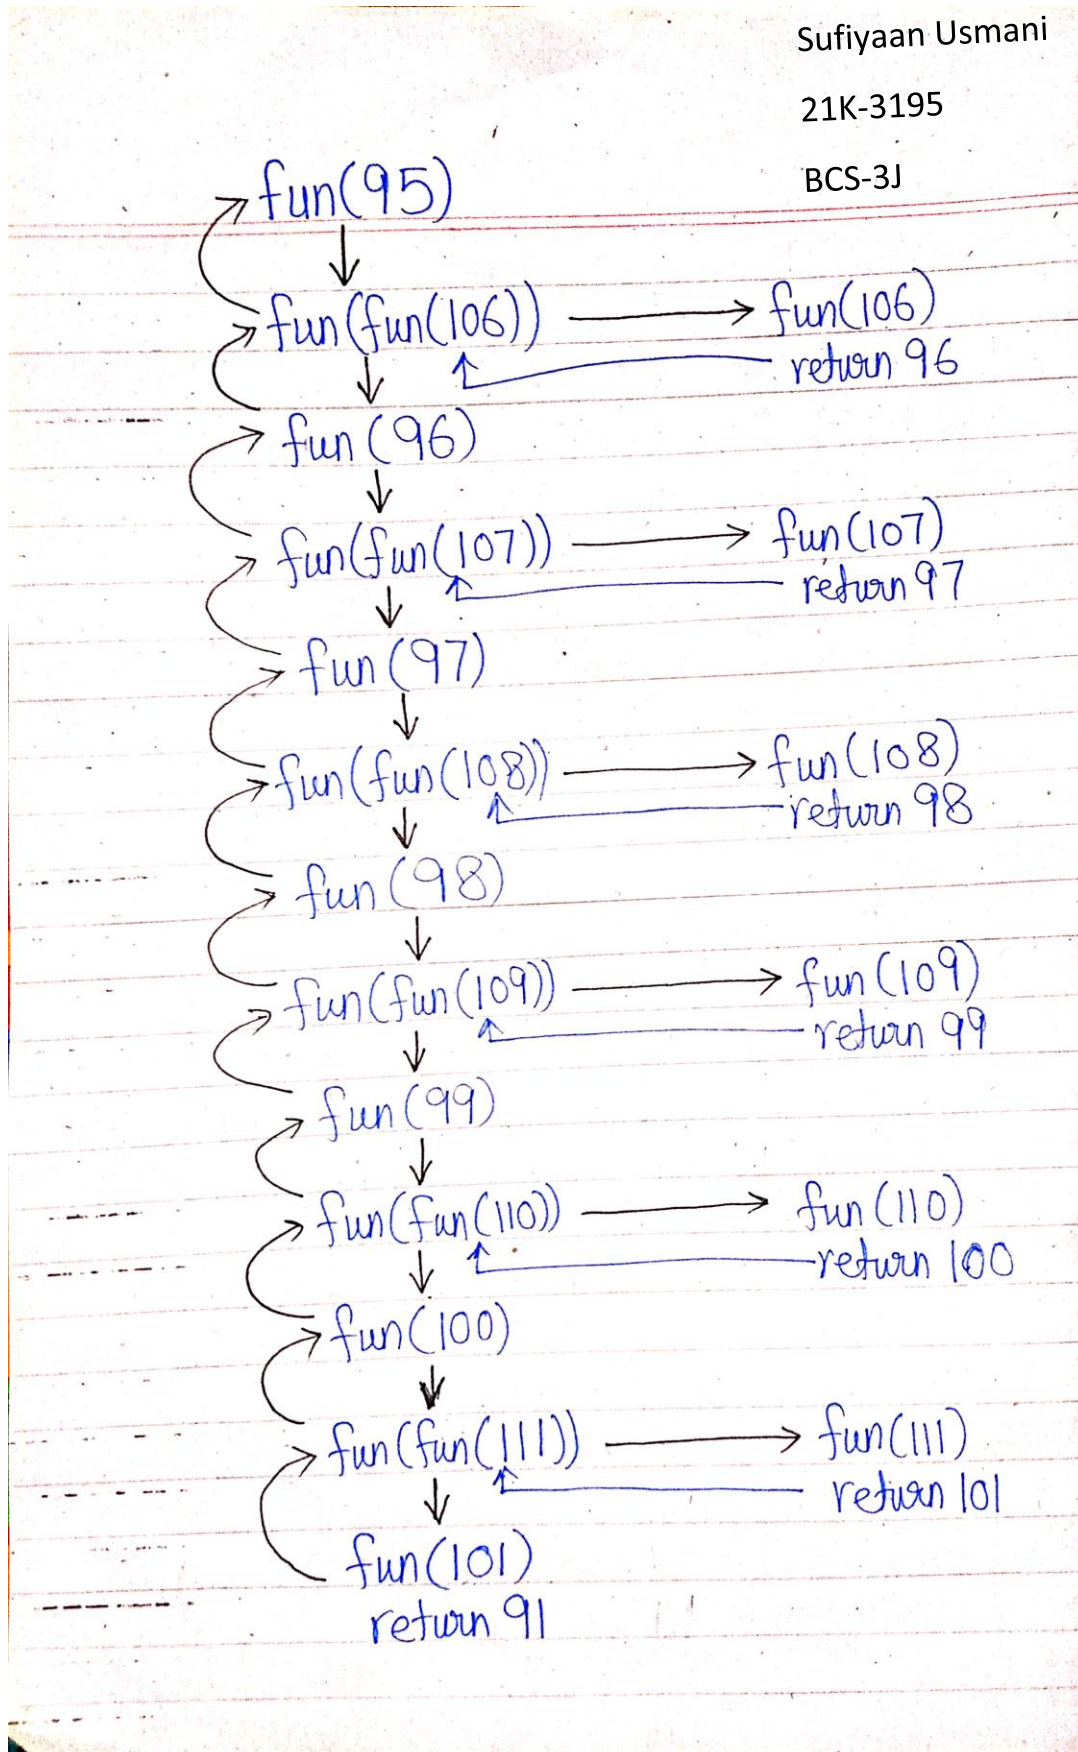 Sufiyaan Usmani
21K-3195
BCS-3J
fun(95)
fun(fun(106)) fun(106)
return 96
fun(96)
fun(fun(107)) fun(107)
return 97
fun(97)
fun(fun(108)) fun(108)
return 98
fun(98)
fun(fun(109)) fun(109)
return 99
fun(99)
fun(fun(110)) fun(110)
return 100
fun(100)
fun(fun(111)) fun(111)
return 101
fun(101)
return 91